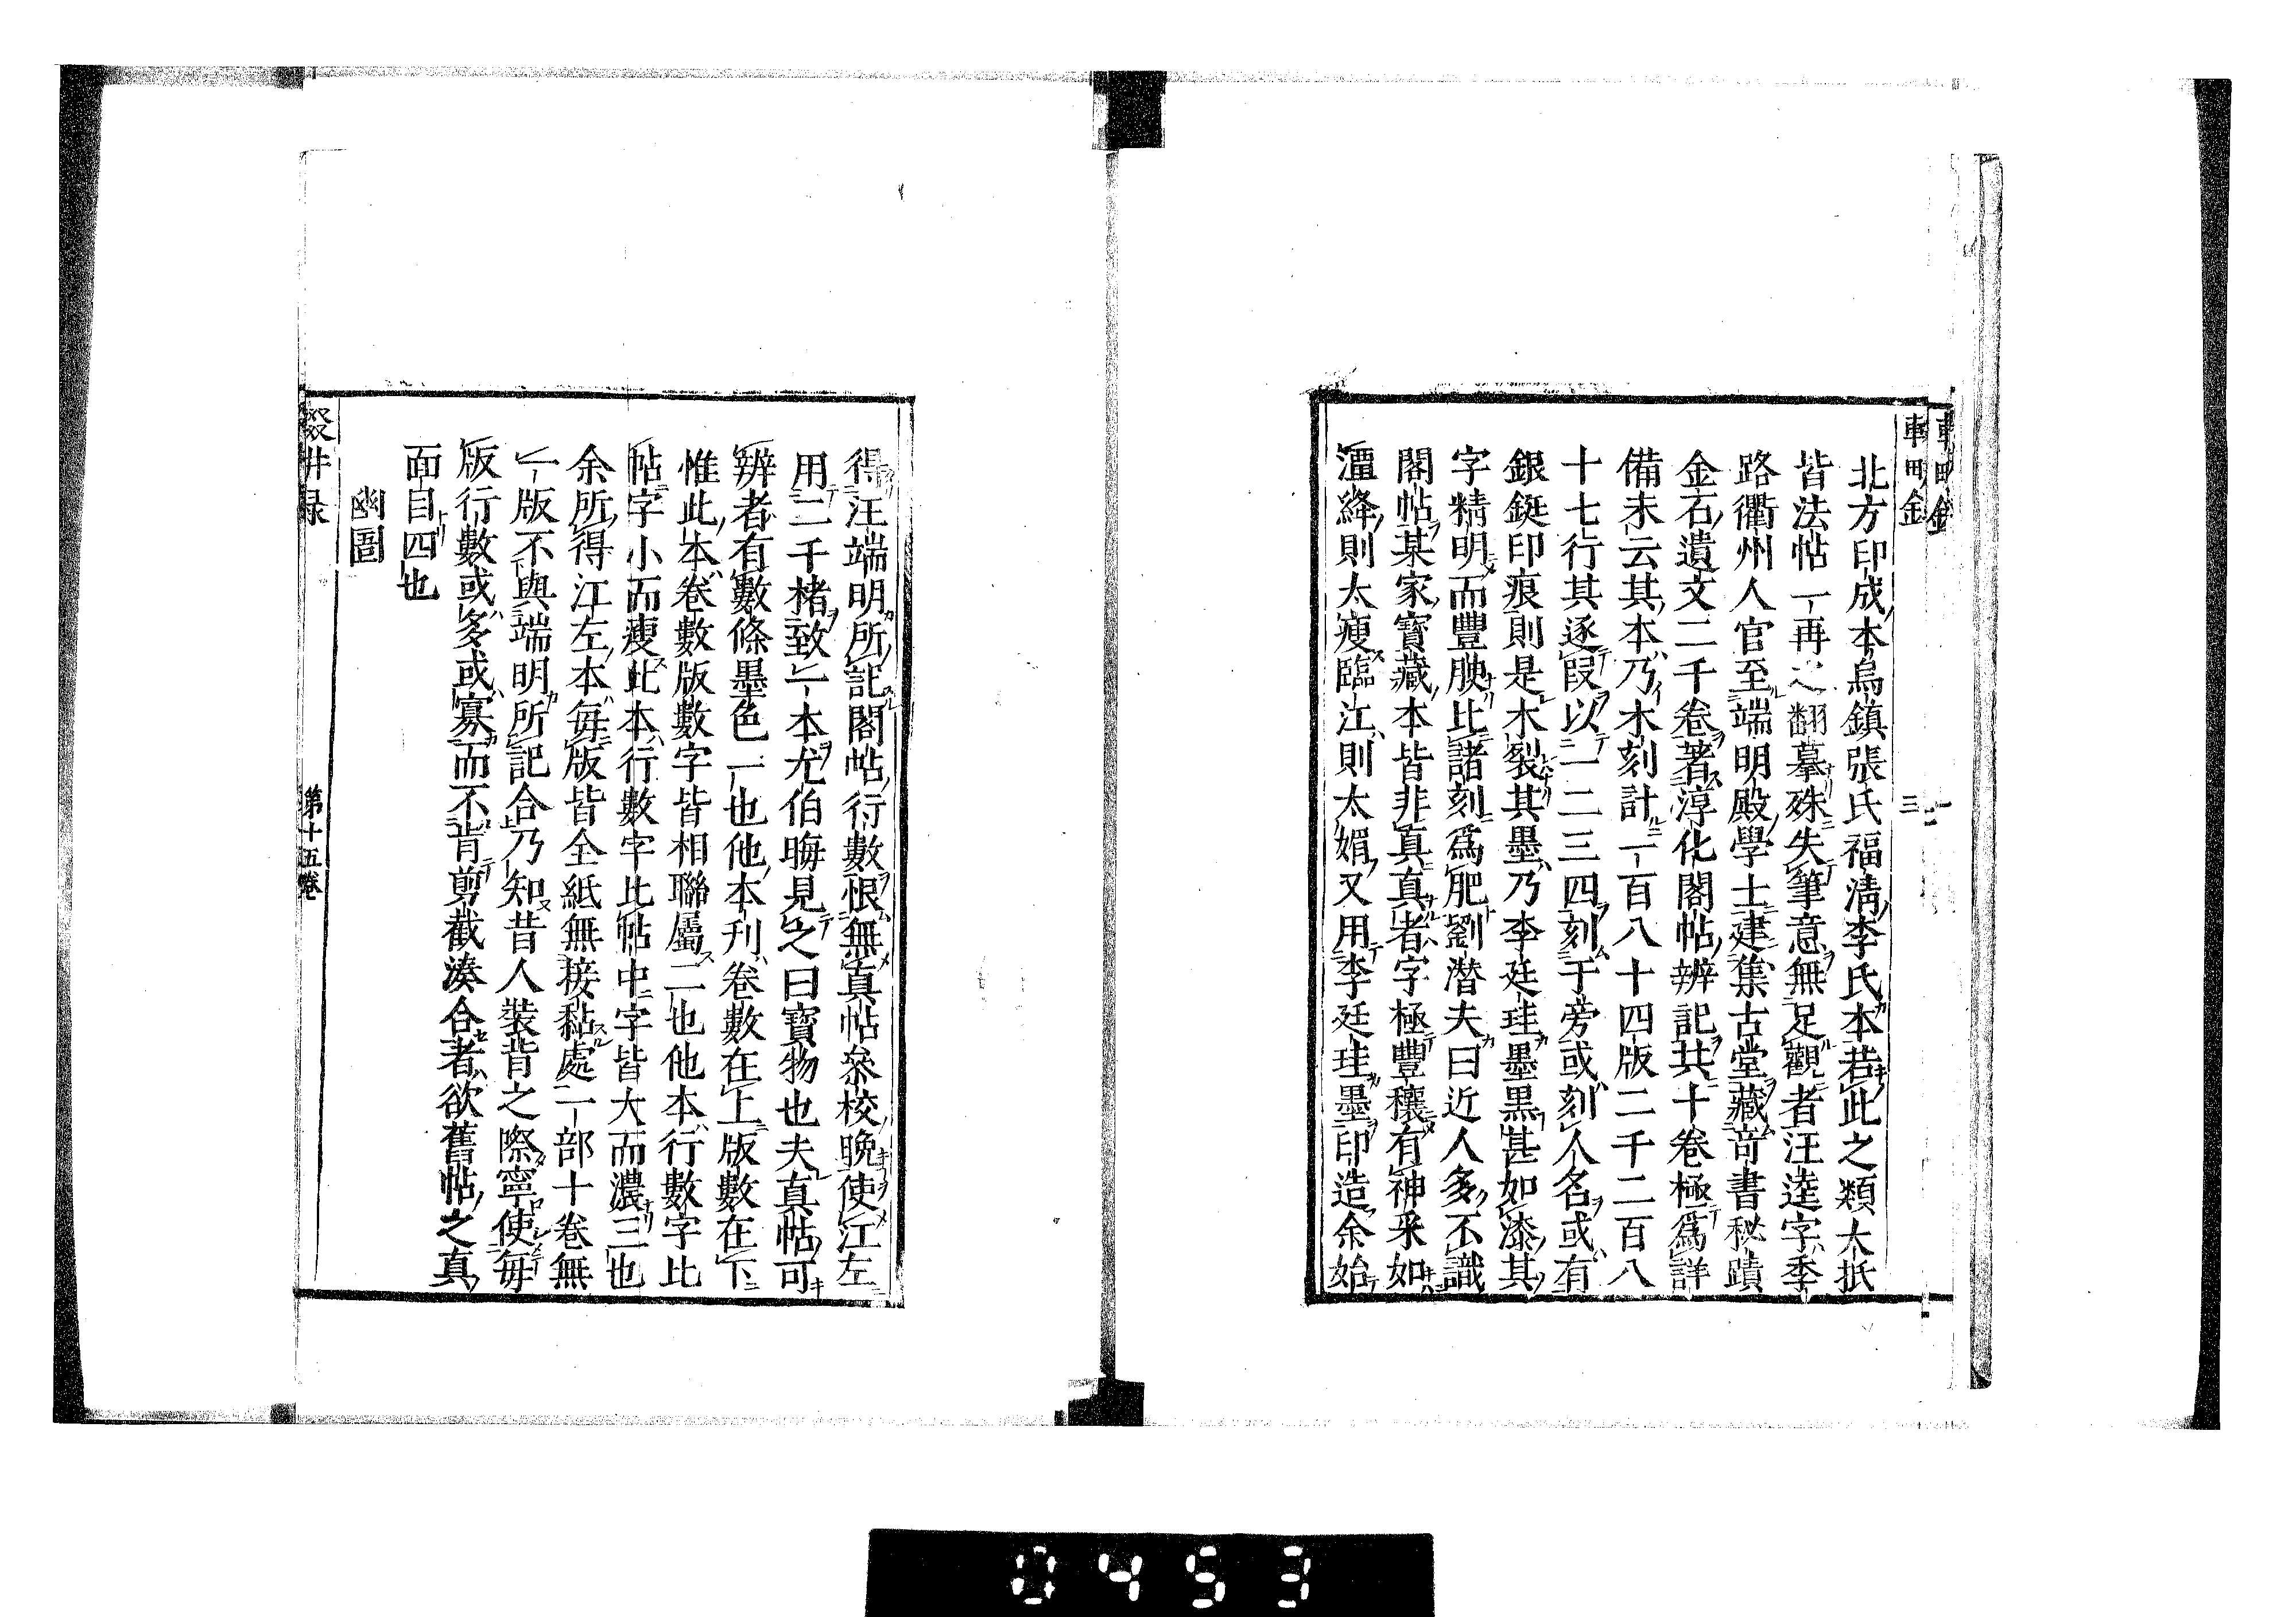 北方印成本烏鎮張氏福淸李氏本若此之類大抵
皆法帖一再之翻摹殊失筆意無足觀者汪逵字季
路衢州人官至端明殿學士建集古堂藏奇書秘蹟
金石遺文二千卷著淳化閣帖辨記共十卷極爲詳
備末云其本乃木刻計一百八十四版二千二百八
十七行其逐段以一二三四刻于旁或刻人名或有
銀鋌印痕則是木裂其墨乃李廷珪墨黑甚如漆其
字精明而豐腴比諸刻爲肥劉潛夫曰近人多不識
閣帖某家寶藏本皆非真真者字極豐穰有神采如
潭絳則太瘦臨江則太媚又用李廷珪墨印造余始
三
得汪端明所記閣帖行數恨無真帖叅校晚使江左
用二千楮致一本尤伯晦見之曰寶物也夫真帖可
辨者有數條墨色一也他本刋卷數在上版數在下
惟此本卷數版數字皆相聯屬二也他本行數字比
帖字小而瘦此本行數字比帖中字皆大而濃三也
余所得江左本每版皆全紙無接黏處一部十卷無
一版不與端明所記合乃知昔人裝背之際寧使每
版行數或多或寡而不肯剪截湊合者欲舊帖之真
面目四也
幽圄
第十五卷
0453